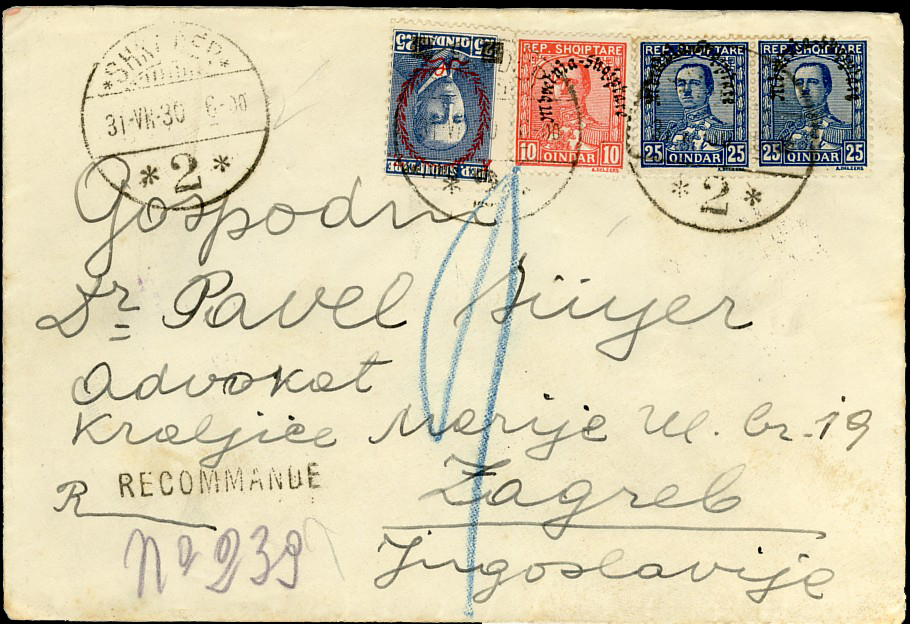 SHKODER
31-VII-30 6-00
* 2 *
25 QINDAR 25
REP. SHQIPTARE
REP. SHQIPTARE
Mbretnija-Shqiptare
10 QINDAR 10
REP. SHQIPTARE
Mbretnija-Shqiptare
25 QINDAR 25
REP. SHQIPTARE
Mbretnija-Shqiptare
25 QINDAR 25
* 2 *
Gospodni
Dr Pavel
Advokat
Kraljice Marije Ul. br. 19
R RECOMMANDE
Zagreb
No 239
Jugoslavije